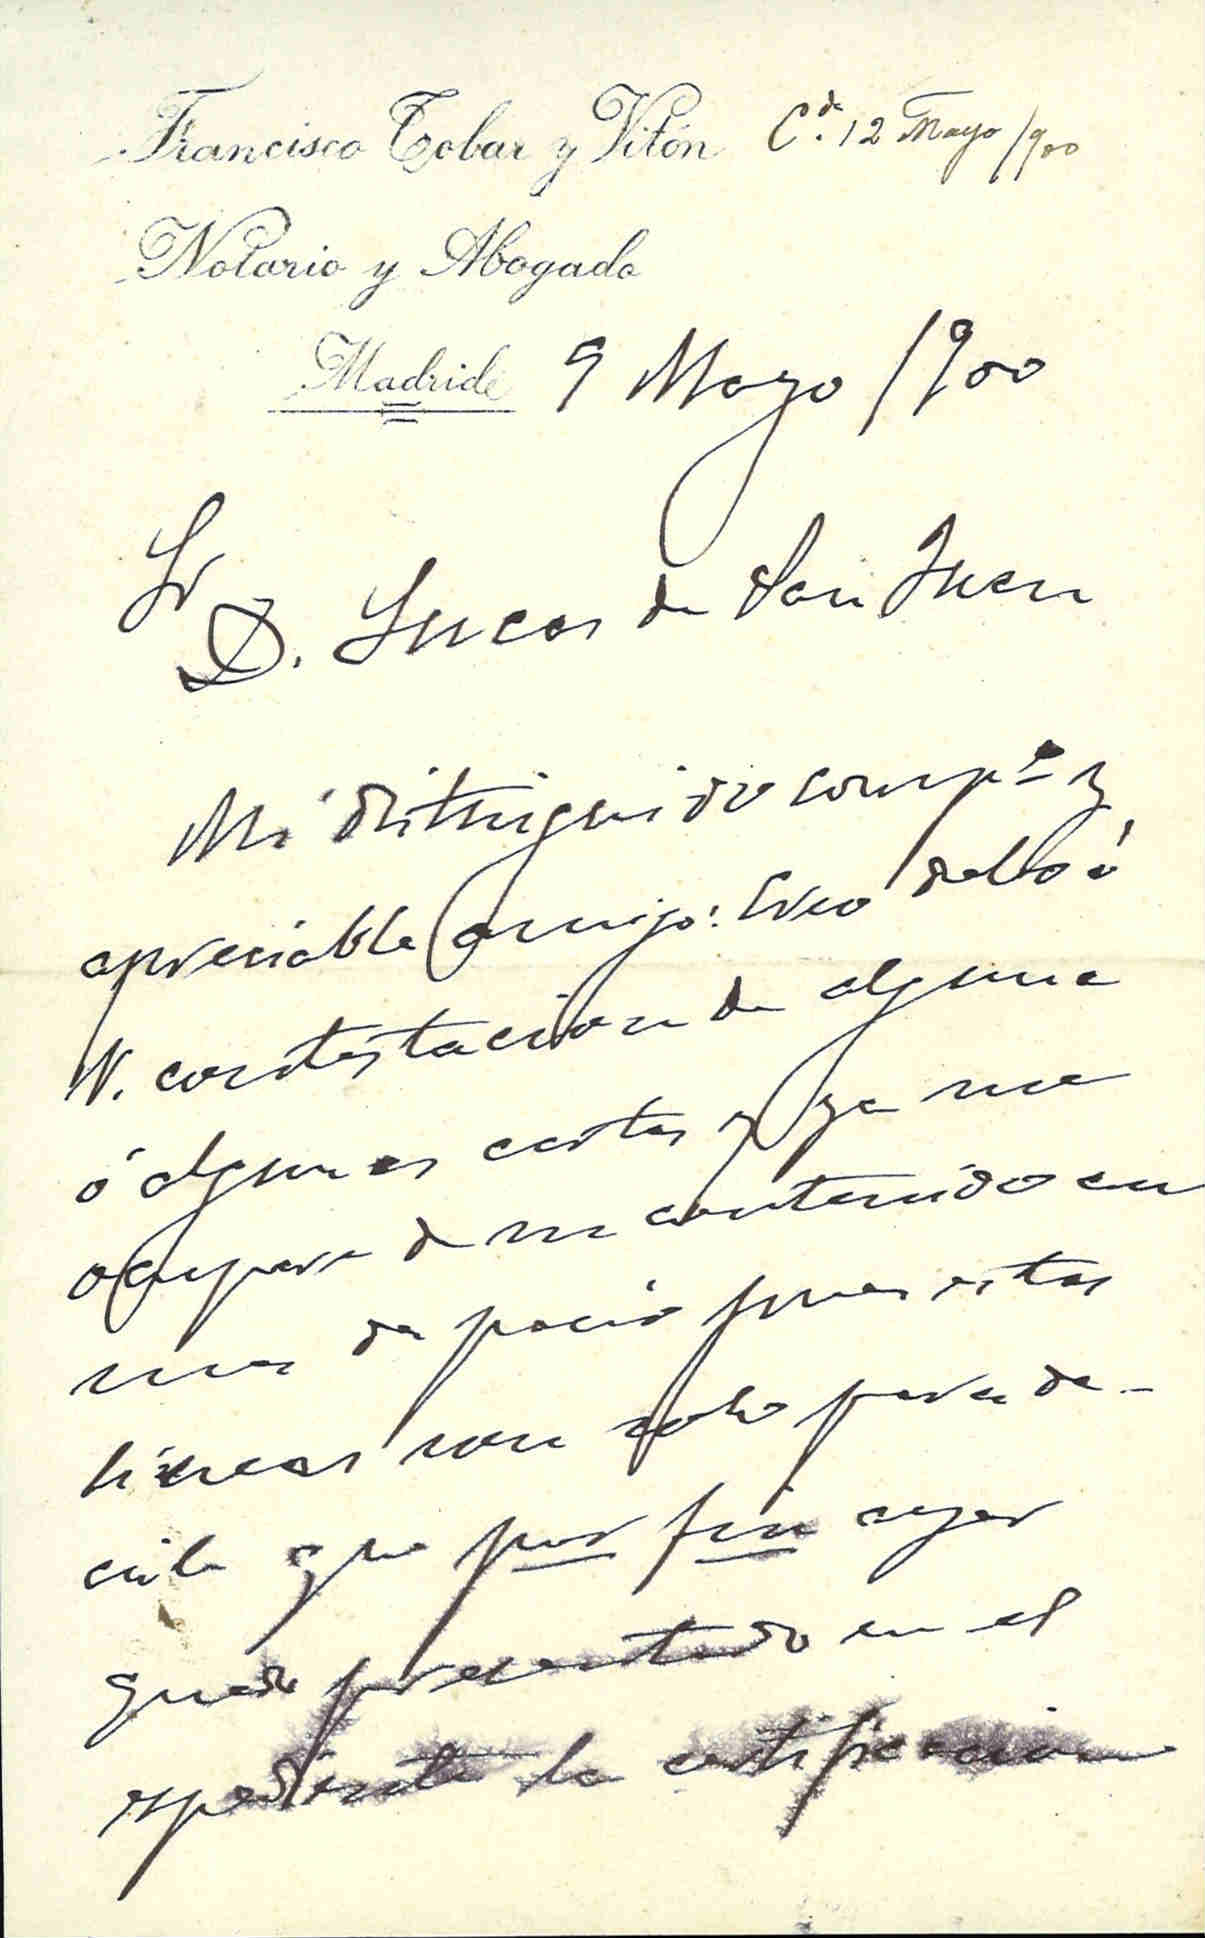 Francisco Tobar y Vitón Cda. 12 Mayo/900
Notario y Abogado
Madrid 9 Mayo/900
Sr
D. Lucas de San Juan
Mi distinguido compº y
apreciable amigo: Creo debo á
V. contestacion de alguna
ó algunas cartas y ya me
ocupare de su contenido con
mas espacio pues estas
líneas son solo para de-
cirle que por fin ayer
quedo presentado en el
espediente la certificacion